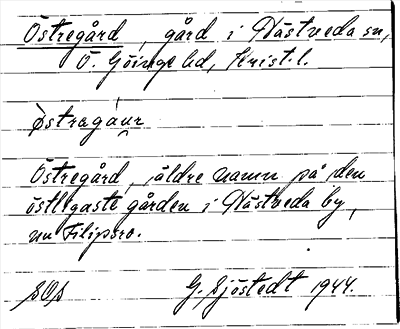 Östregård, gård i Nästveda sn,
Ö. Göinge hd, Krist.l.
östragáur
Östregård, äldre namn på den
östligaste gården i Nästveda by,
nu Filipsro.
G. Sjöstedt 1944.